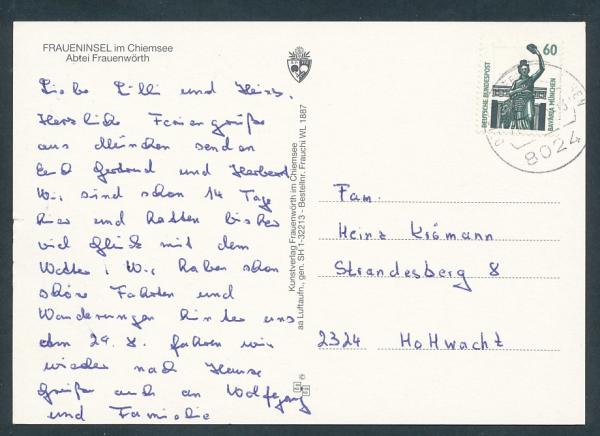 FRAUENINSEL im Chiemsee
Abtei Frauenwörth
Liebe Lilli und Heinz,
Herzliche Feriengrüße
aus München senden
Euch Gertrud und Herbert
Wir sind schon 14 Tage
hier und hatten bisher
viel Glück mit dem
Wetter. Wir haben schon
schöne Fahrten und
Wanderungen hinter uns
dem 29. 8. fahren wir
wieder nach Hause
Grüße auch an Wolfgang
und Familie
Kunstverlag Frauenwörth im Chiemsee
aa Luftaufn., gen. SH 1-32213 - Bestellnr. Frauchi WL 1887
60
DEUTSCHE BUNDESPOST
BAVARIA MÜNCHEN
8024
Fam.
Heinz Krömann
Strandesberg 8
2324 Hohwacht